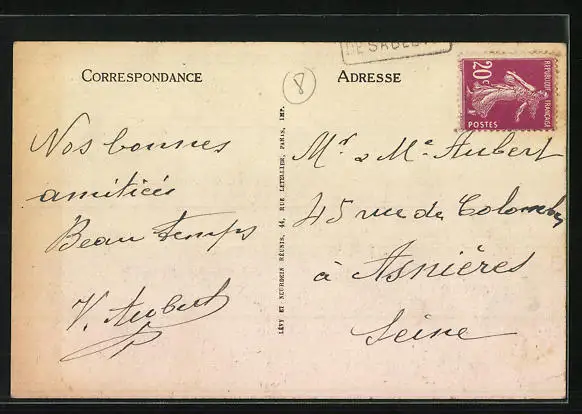 CORRESPONDANCE
Nos bonnes
amitiées
Beau temps
V. Aubert
LÉVY ET NEURDEIN RÉUNIS, 44, RUE LETELLIER, PARIS, IMP.
8
ADRESSE
RÉPUBLIQUE FRANÇAISE
20c
POSTES
Mr & Me Aubert
45 rue de Colombes
à Asnières
Seine